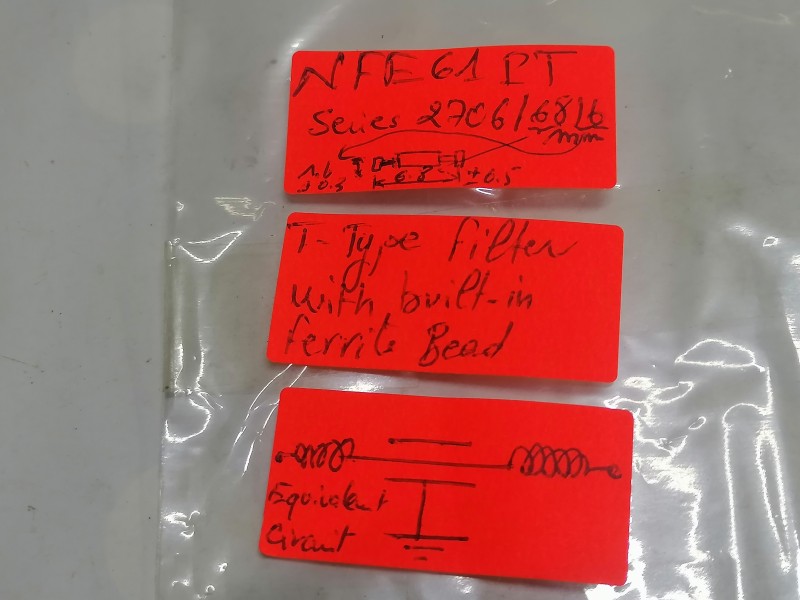 NFE61PT
Series 2706/6816
mm
1.6 6.8 ±0.5
±0.3
T-Type filter
with built-in
ferrite Bead
Equivalent
Circuit